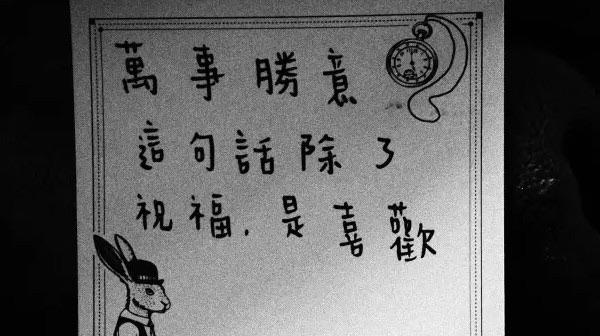 萬事勝意
這句話除了
祝福，是喜歡